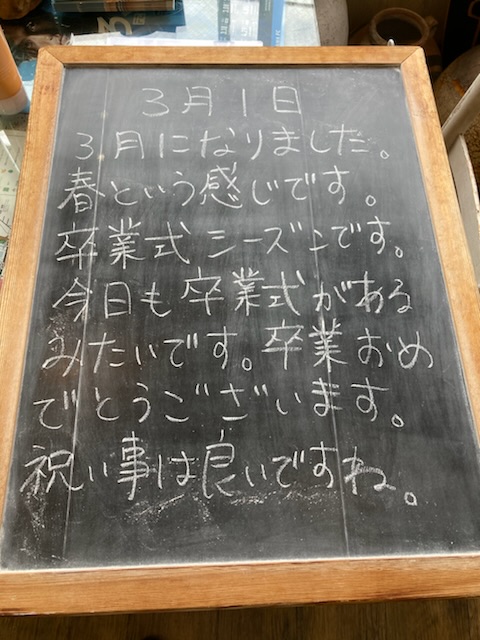 3月1日
3月になりました。
春という感じです。
卒業式シーズンです。
今日も卒業式がある
みたいです。卒業おめ
でとうございます。
祝い事は良いですね。